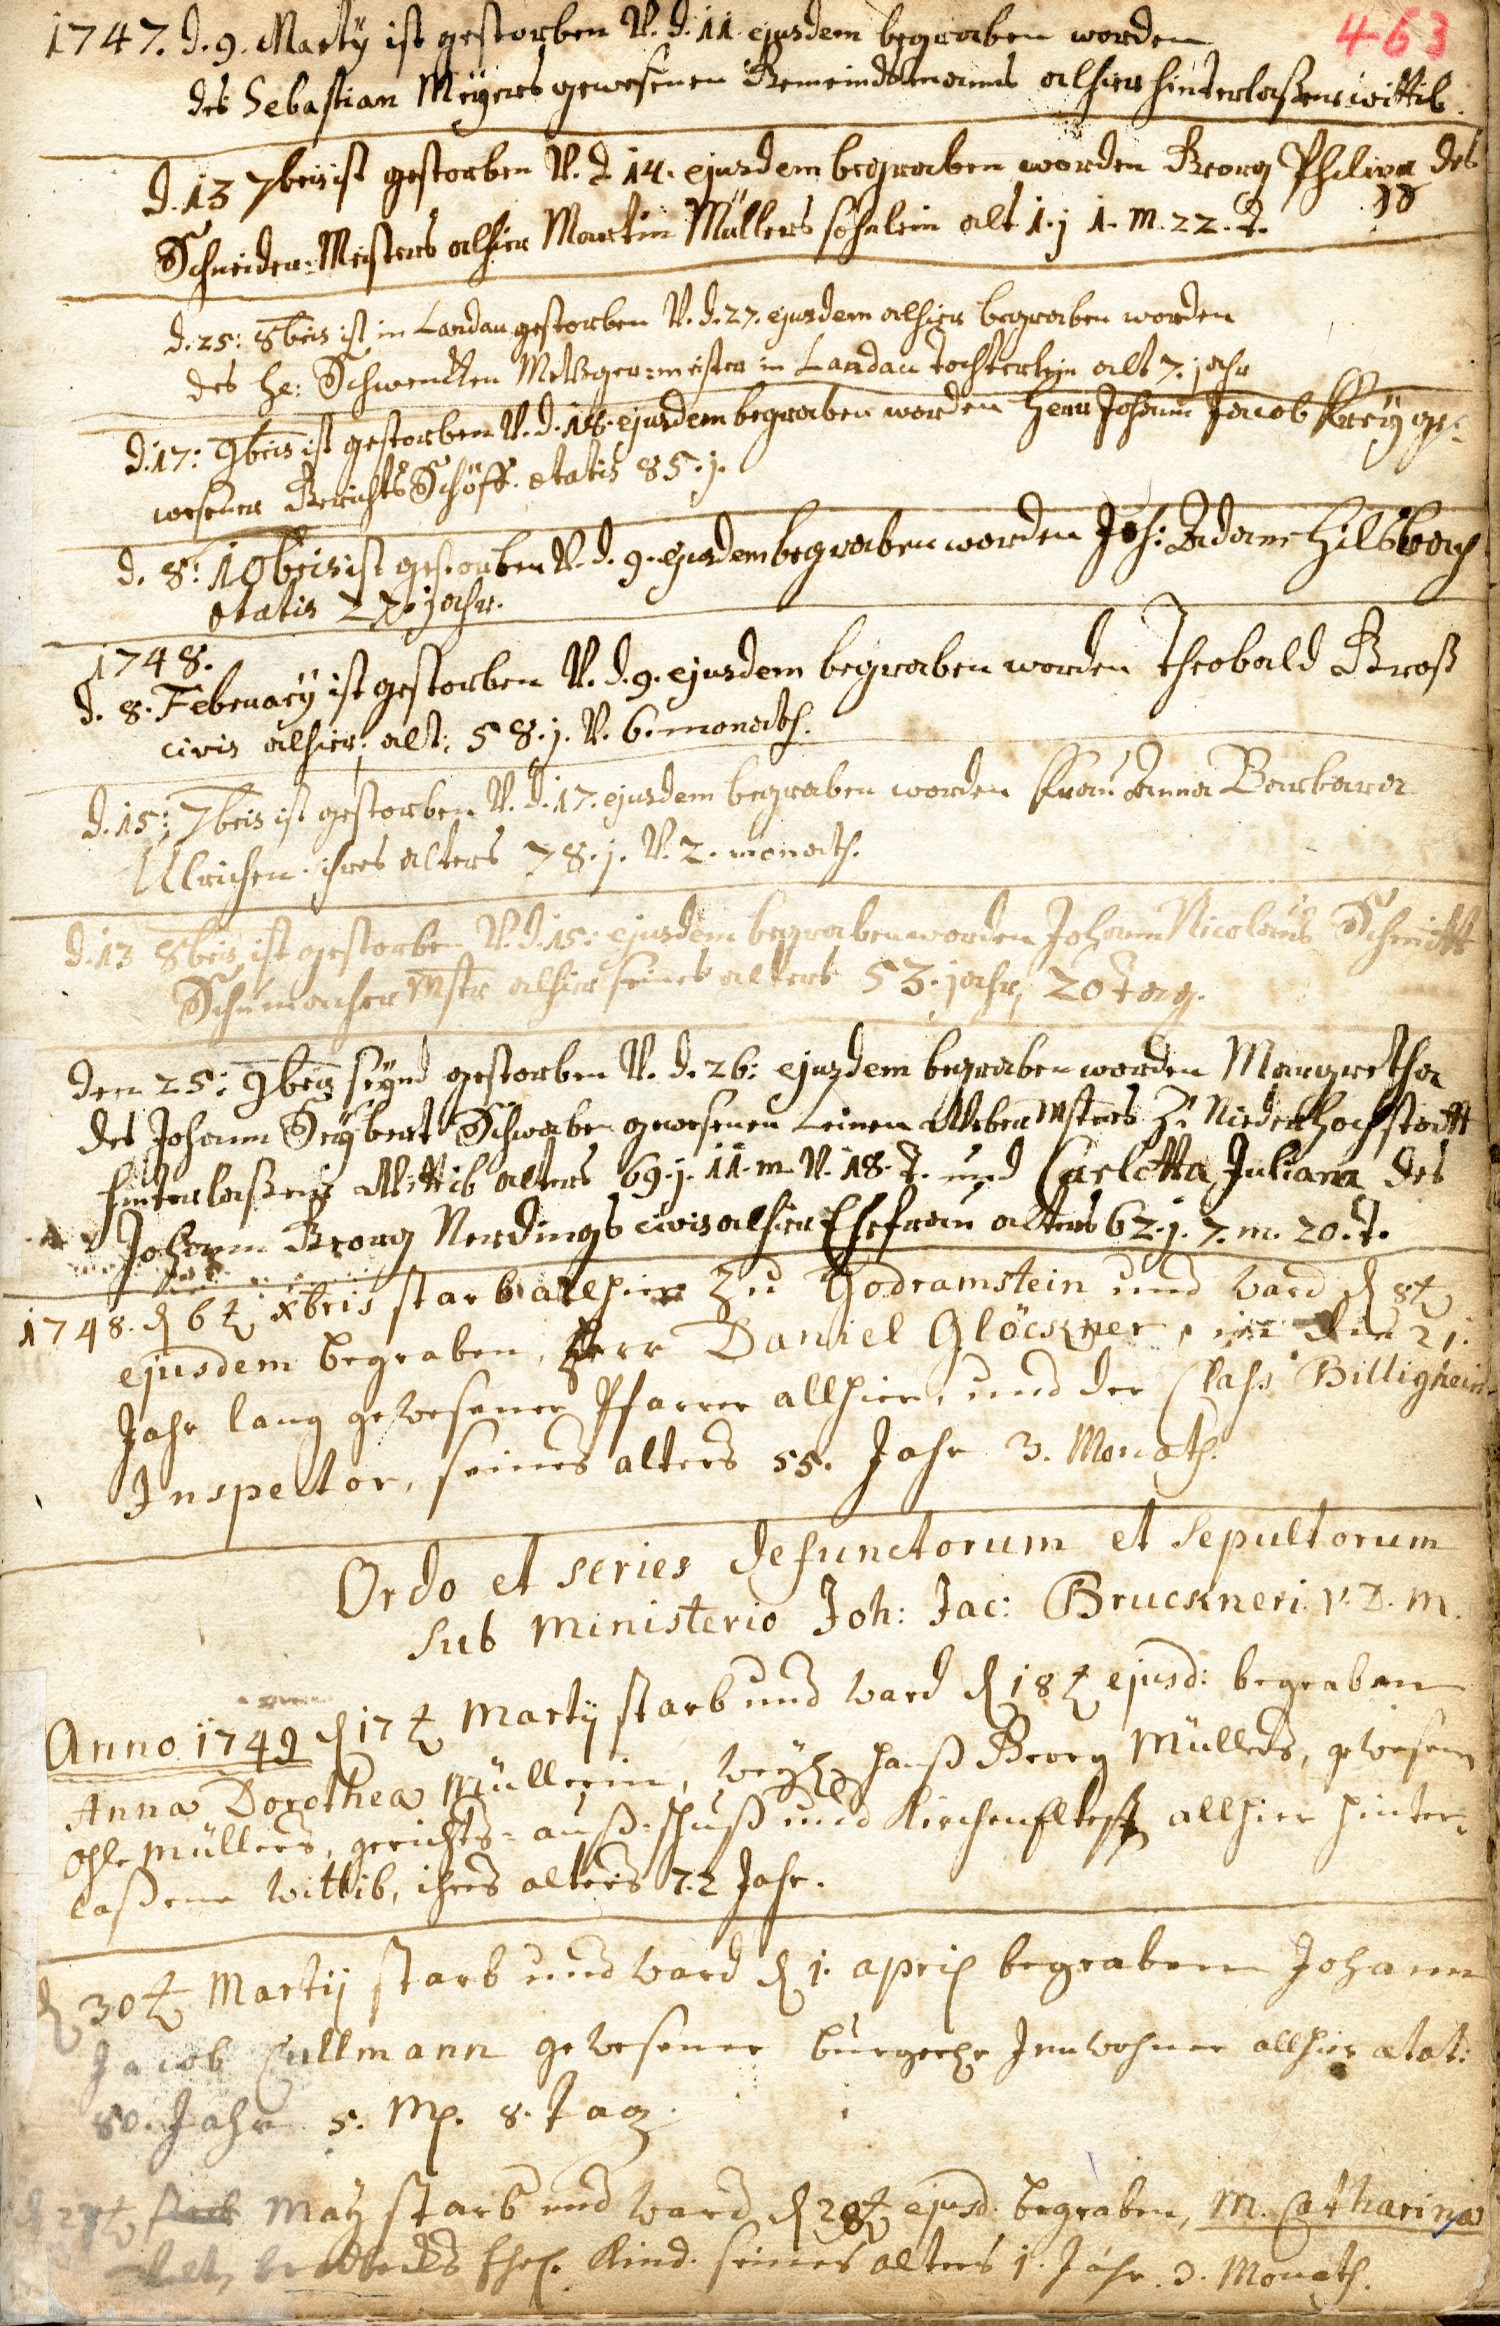 463
1747. d. 9. Martÿ ist gestorben V. d. 11. ejusdem begraben worden
des Sebastian Meÿers gewesenen Gemeindsmanns alhier hinterlaßene wittib.
d. 13 7bris ist gestorben V. d 14. ejusdem begraben worden Georg Philipp des
Schneider-Meisters alhier Martin Müllers söhnlein alt 1. j 1. m. 22. T.
d. 25: 8bris ist in Landau gestorben V. d. 27. ejusdem alhier begraben worden
des he: Schwencken Metzger-meister in Landau töchterlein alt 7. jahr
d. 17: 9bris ist gestorben V. d. 18. ejusdem begraben worden Herr Johann Jacob Kreÿ ge-
wesener Gerichts Schöff. etatis 85. j.
d. 8: 10bris ist gestorben V. d. 9. ejusdem begraben worden Joh: Adam Hilsbach
etatis jahr.
1748.
d. 8. Februarÿ ist gestorben V. d. 9. ejusdem begraben worden Theobald Groß
civis alhier; alt: 58. j. V. 6. monath.
d. 15: 7bris ist gestorben V. d. 17. ejusdem begraben worden Frau Anna Barbara
Ulrichen. ihres alters 78. j. V. 2. monath.
d. 13 8bris ist gestorben V. d. 15: ejusdem begraben worden Johann Nicolaus Schmitt
Schumacher Mstr alhier seines alters 53. jahr, 20 tag.
den 25: 9bris seynd gestorben V. d. 26: ejusdem begraben worden Margretha
des Johann Seÿbert Schwabe gewesenen Leinen Weber Msters zu Niederhochstatt
hinterlaßene Wittib alters 69. j. 11. m. V. 18. T. und Carlotta Juliana des
Johann Georg Nerdings civis alhier Ehefrau alters 62. j. 7. m. 20. T.
1748. d 6t xbris starb allhier zu Godramstein und ward d 8t
ejusdem begraben, Herr Daniel Glöckner, in die 21.
Jahr lang gewesener Pfarrer allhier, und der Class Billigheim
Inspector, seines alters 55. Jahr 3. Monath.
Ordo et series defunctorum et sepultorum
sub ministerio Joh: Jac: Bruckneri. V. D. M.
Anno 1749 d 17t Martij starb und ward d 18t ejusd: begraben
Anna Dorothea Müllerin, weyl hanß Georg Müllers, gewesenen
Ohl-müllers, gerichts-auß-schuß und Kirchenältest allhier hinter-
laßene Wittib, ihres alters 72 Jahr.
d 30t Martij starb und ward d 1. april begraben Johann
Jacob Cullmann gewesener burgerl Innwohner allhier ætat:
80. Jahr 5. M. 8. Tag.
d May starb und ward d 28t ejusd. begraben, M. Catharina
Ehel. Kind. seines alters 1. Jahr. 3. Monath.